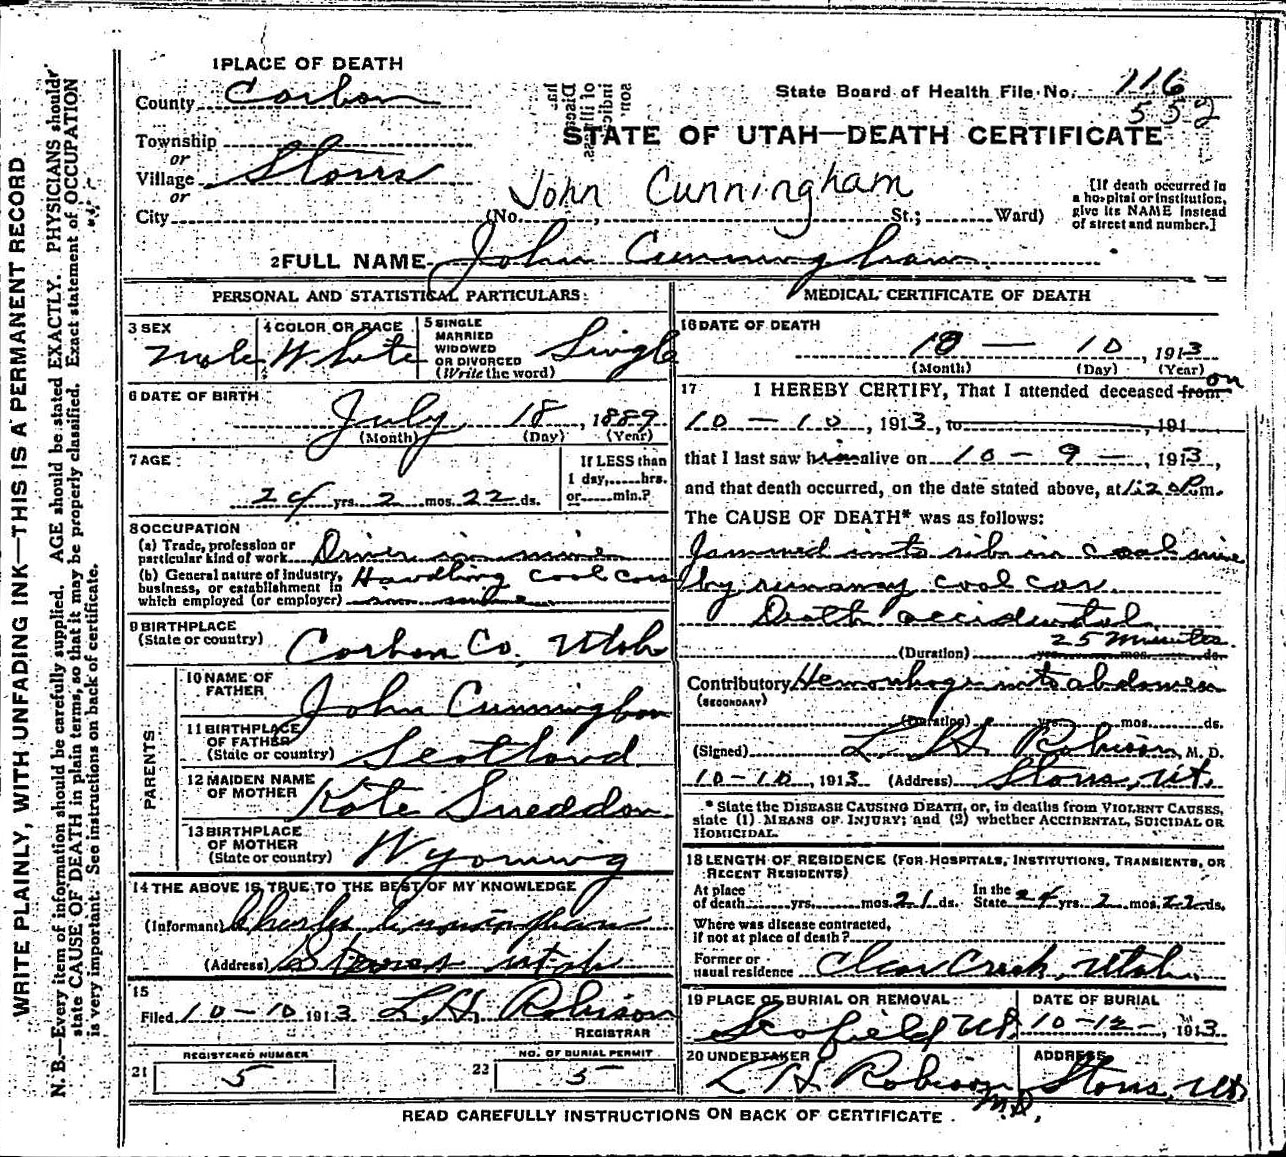 1 PLACE OF DEATH
County Carbon
Township
or
Village Storrs
or
City (No. St.; Ward)
State Board of Health File No. 116
552
STATE OF UTAH—DEATH CERTIFICATE
John Cunningham
[If death occurred in
a hospital or institution,
give its NAME instead
of street and number.]
2 FULL NAME John Cunningham.
PERSONAL AND STATISTICAL PARTICULARS
3 SEX
Male
4 COLOR OR RACE
White
5 SINGLE
MARRIED
WIDOWED
OR DIVORCED
(Write the word)
Single
6 DATE OF BIRTH
July 18, 1889
(Month) (Day) (Year)
7 AGE
24 yrs. 2 mos. 22 ds.
If LESS than
1 day,......hrs.
or......min.?
8 OCCUPATION
(a) Trade, profession or
particular kind of work Driver in mine
(b) General nature of industry,
business, or establishment in
which employed (or employer)
Handling coal cars
in mine
9 BIRTHPLACE
(State or country) Carbon Co., Utah
PARENTS
10 NAME OF
FATHER John Cunningham
11 BIRTHPLACE
OF FATHER
(State or country) Scotland
12 MAIDEN NAME
OF MOTHER Kate Sneddon
13 BIRTHPLACE
OF MOTHER
(State or country) Wyoming
14 THE ABOVE IS TRUE TO THE BEST OF MY KNOWLEDGE
(Informant) Charles Cunningham
(Address) Storrs Utah
15
Filed 10-10 1913 L. H. Robison
REGISTRAR
21 REGISTERED NUMBER
5
22 NO. OF BURIAL PERMIT
5
MEDICAL CERTIFICATE OF DEATH
16 DATE OF DEATH
10 — 10, 1913
(Month) (Day) (Year)
17 I HEREBY CERTIFY, That I attended deceased from on
10-10, 1913, to 191
that I last saw him alive on 10-9-, 1913,
and that death occurred, on the date stated above, at 1:20 P.m.
The CAUSE OF DEATH* was as follows:
Jammed into rib in coal mine
by runaway coal car.
Death accidental.
25 Minutes
(Duration) yrs. mos. ds.
Contributory Hemorrhage into abdomen
(SECONDARY)
(Duration) yrs. mos. ds.
(Signed) L. H. Robison, M. D.
10-10, 1913 (Address) Storrs, Ut.
* State the DISEASE CAUSING DEATH, or, in deaths from VIOLENT CAUSES,
state (1) MEANS OF INJURY; and (2) whether ACCIDENTAL, SUICIDAL OR
HOMICIDAL.
18 LENGTH OF RESIDENCE (FOR HOSPITALS, INSTITUTIONS, TRANSIENTS, OR
RECENT RESIDENTS)
At place
of death yrs. mos. 21 ds.
In the
State 24 yrs. 2 mos. 22 ds.
Where was disease contracted,
if not at place of death?
Former or
usual residence Clear Creek, Utah.
19 PLACE OF BURIAL OR REMOVAL
Scofield Ut.
DATE OF BURIAL
10-12-, 1913
20 UNDERTAKER
L H. Robison
M.D.
ADDRESS
Storrs, Ut.
READ CAREFULLY INSTRUCTIONS ON BACK OF CERTIFICATE.
WRITE PLAINLY, WITH UNFADING INK—THIS IS A PERMANENT RECORD
N. B.—Every item of information should be carefully supplied. AGE should be stated EXACTLY. PHYSICIANS should
state CAUSE OF DEATH in plain terms, so that it may be properly classified. Exact statement of OCCUPATION
is very important. See instructions on back of certificate.